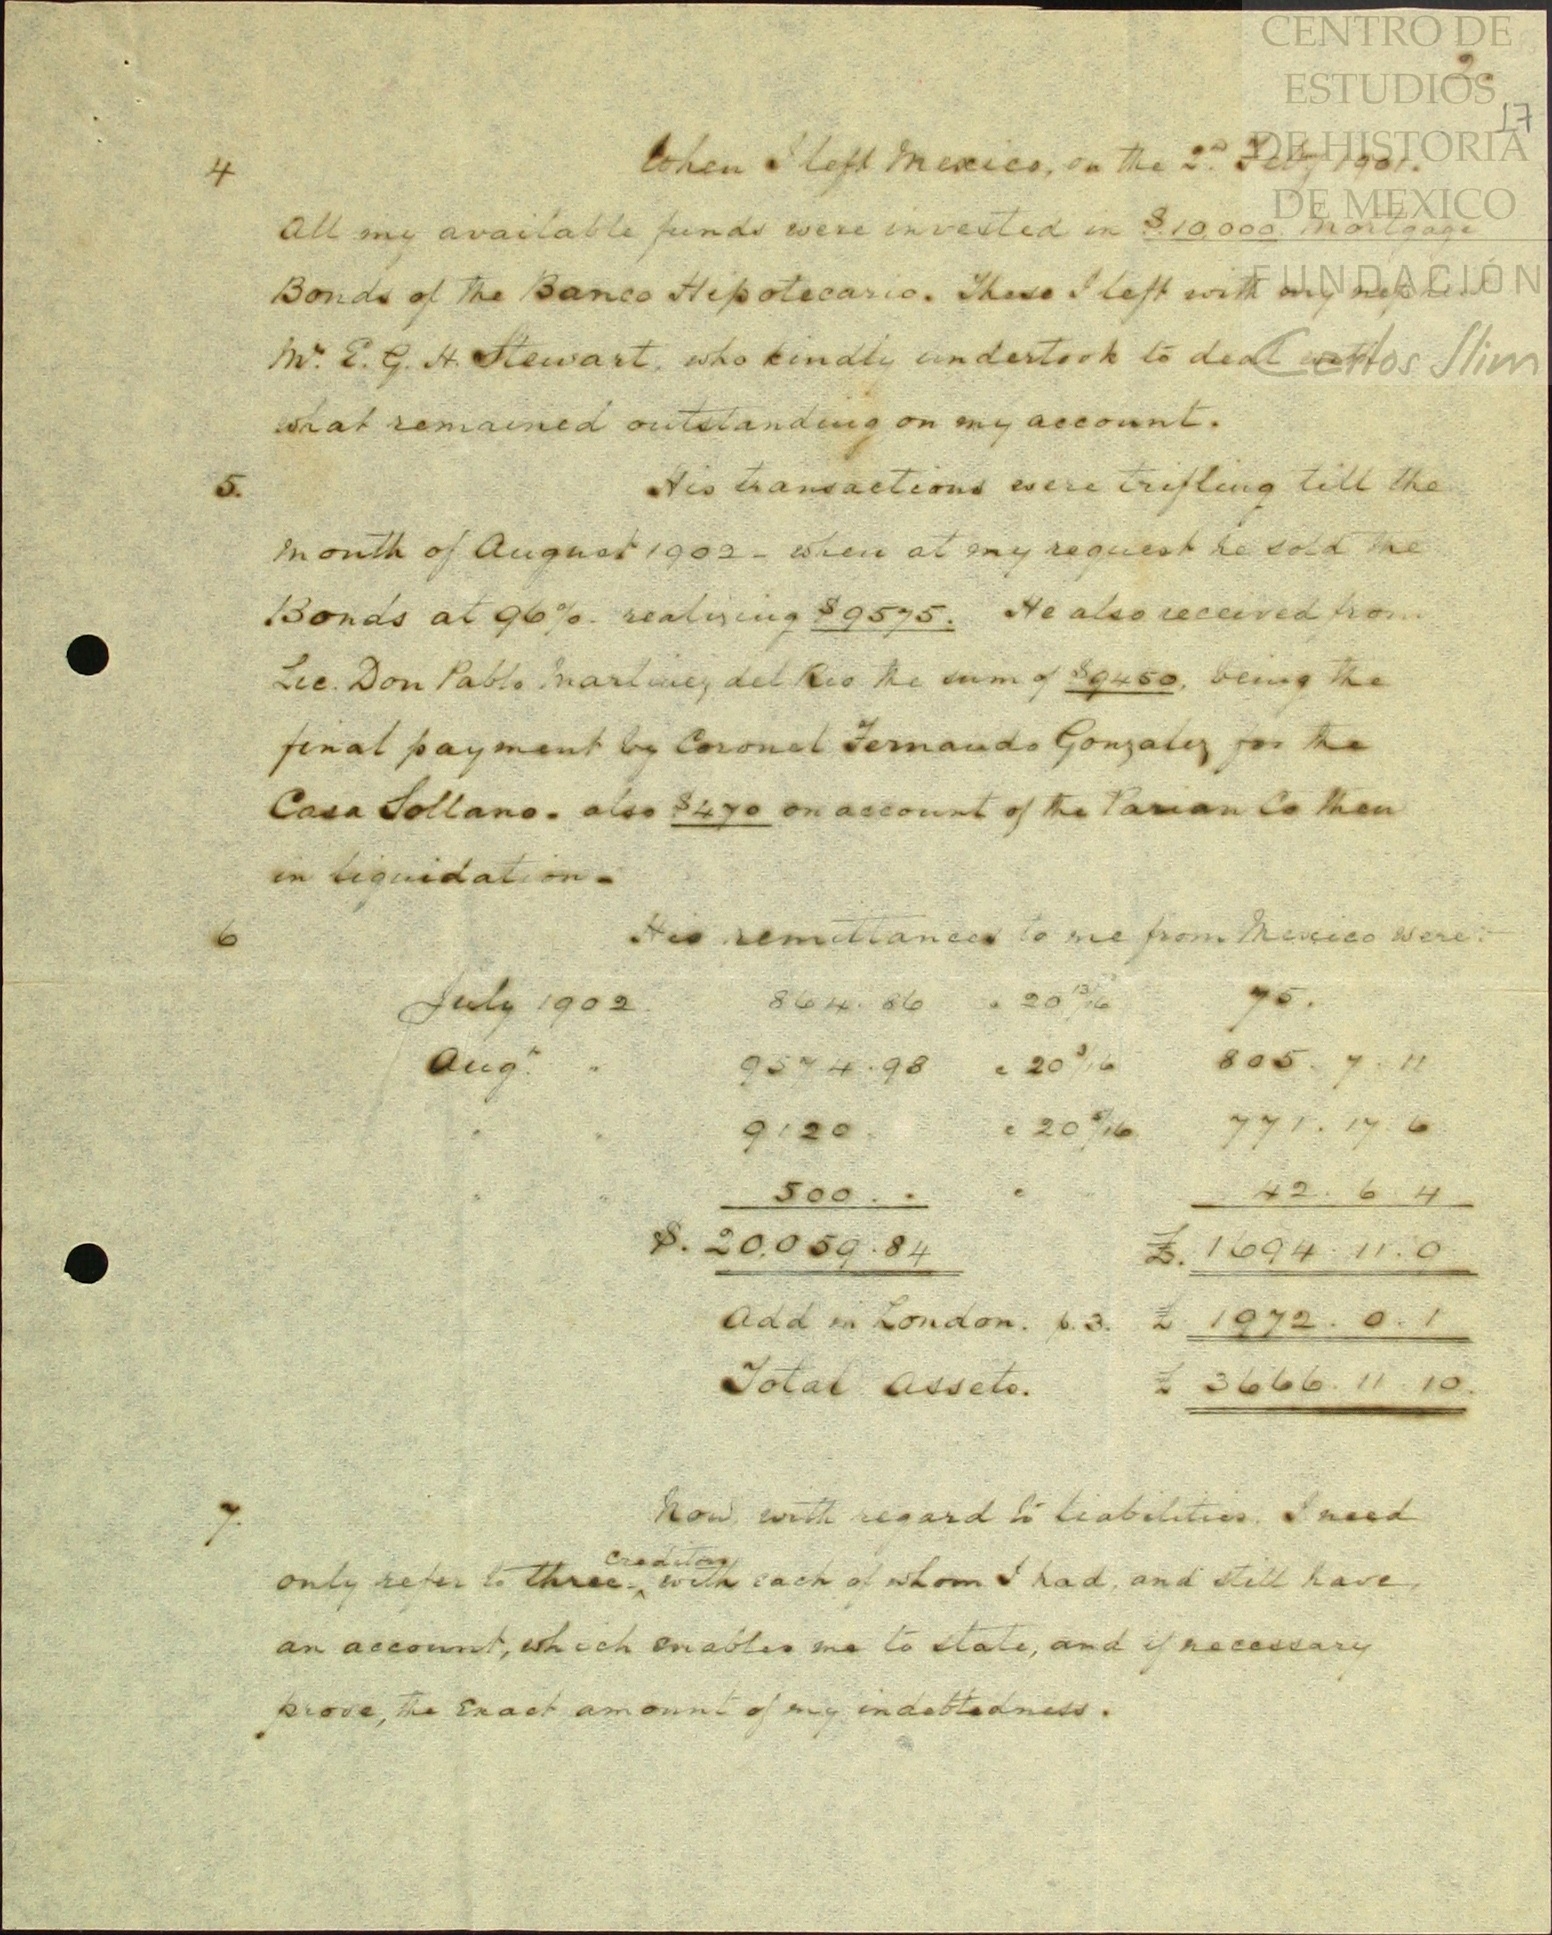 CENTRO DE
ESTUDIOS
DE HISTORIA
DE MEXICO
FUNDACIÓN
Carlos Slim
2.
17
4 When I left Mexico, on the 2nd Feby 1901.
All my available funds were invested in $10,000 Mortgage
Bonds of the Banco Hipotecario. These I left with my nephew
Mr. E. G. H. Stewart, who kindly undertook to deal with
what remained outstanding on my account.
5. His transactions were trifling till the
month of August 1902 - when at my request he sold the
Bonds at 96%. realizing $9575. He also received from
Lic. Don Pablo Martinez del Rio the sum of $9450, being the
final payment by Coronel Fernando Gonzalez for the
Casa Sollano. also $470 on account of the Parian Co then
in liquidation -
6 His remittances to me from Mexico were:-
July 1902. 864.86 @ 20 13/16 75.
Augt. " 9574.98 @ 20 3/16 805. 7. 11
" " 9120. @ 20 5/16 771. 17. 6
" " 500. . " 42. 6. 4
$. 20,059.84 £. 1694. 11. 9
Add in London. p.3. £ 1972. 0. 1
Total Assets. £ 3666. 11. 10.
7. Now, with regard to liabilities. I need
only refer to three - creditors with each of whom I had, and still have,
an account, which enables me to state, and if necessary
prove, the Exact amount of my indebtedness.